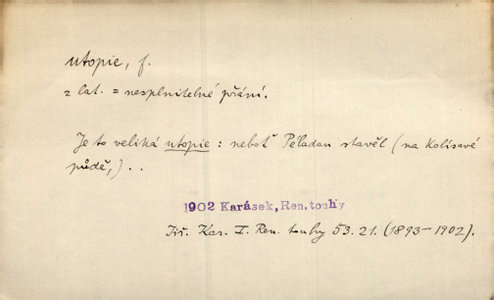 utopie, f.
z lat. = nesplnitelné přání.
Je to veliká utopie: neboť Péladan stavěl (na kolísavé
půdě,) . .
1902 Karásek, Ren. touhy
Jiř. Kar. I. Ren. touhy 53. 21. (1893–1902).